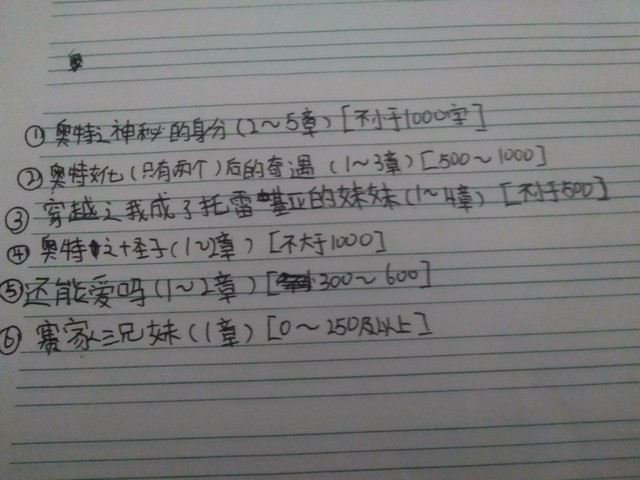 奥
①奥特之神秘的身份(2～5章)[不小于1000字]
②奥特女化(只有两个)后的奇遇(1～3章)[500～1000]
③穿越之我成了托雷基亚的妹妹(1～4章)[不小于500]
④奥特之怪子(1～2章)[不大于1000]
⑤还能爱吗(1～2章)[300～600]
⑥赛家三兄妹(1章)[0～250及以上]